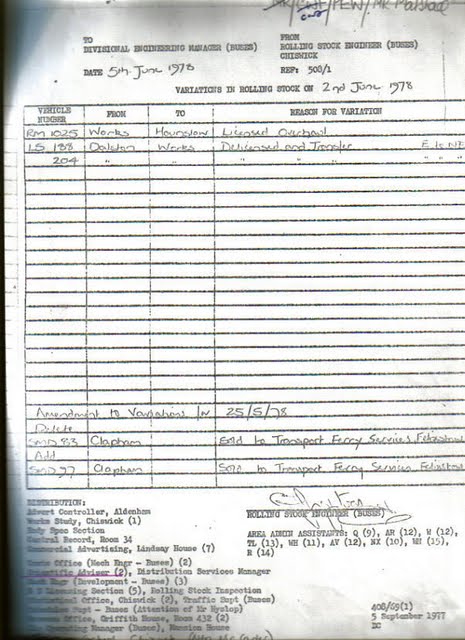 TO
DIVISIONAL ENGINEERING MANAGER (BUSES)
FROM
ROLLING STOCK ENGINEER (BUSES)
CHISWICK
DATE 5th June 1978
REF: 508/1
VARIATIONS IN ROLLING STOCK ON 2nd June 1978
VEHICLE NUMBER FROM TO REASON FOR VARIATION
RM 1025 Works Hounslow Licensed Overhaul
LS 188 Dalston Works Delicensed and Transfer E to NE
204 " " " " " " " "
Amendment to Variations 25/5/78
Delete
SMD 83 Clapham Sold to Transport Ferry Services Felixstowe
Add
SMD 97 Clapham Sold to Transport Ferry Services Felixstowe
DISTRIBUTION:
Advert Controller, Aldenham
Works Study, Chiswick (1)
Body Spec Section
Central Record, Room 34
Commercial Advertising, Lindsay House (7)
ROLLING STOCK ENGINEER (BUSES)
AREA ADMIN ASSISTANTS: Q (9), AR (12), W (12),
TL (13), WH (11), AV (12), NX (10), WH (15),
R (14)
Office (Mech Engr - Buses) (2)
Scientific Adviser (2), Distribution Services Manager
Engr (Development - Buses) (3)
Section (5), Rolling Stock Inspection
Office, Chiswick (2), Traffic Supt (Buses)
Supt - Buses (Attention of Mr Hyslop)
Office, Griffith House, Room 432 (2)
Operating Manager (Buses), Mansion House
408/69(1)
5 September 1977
DG